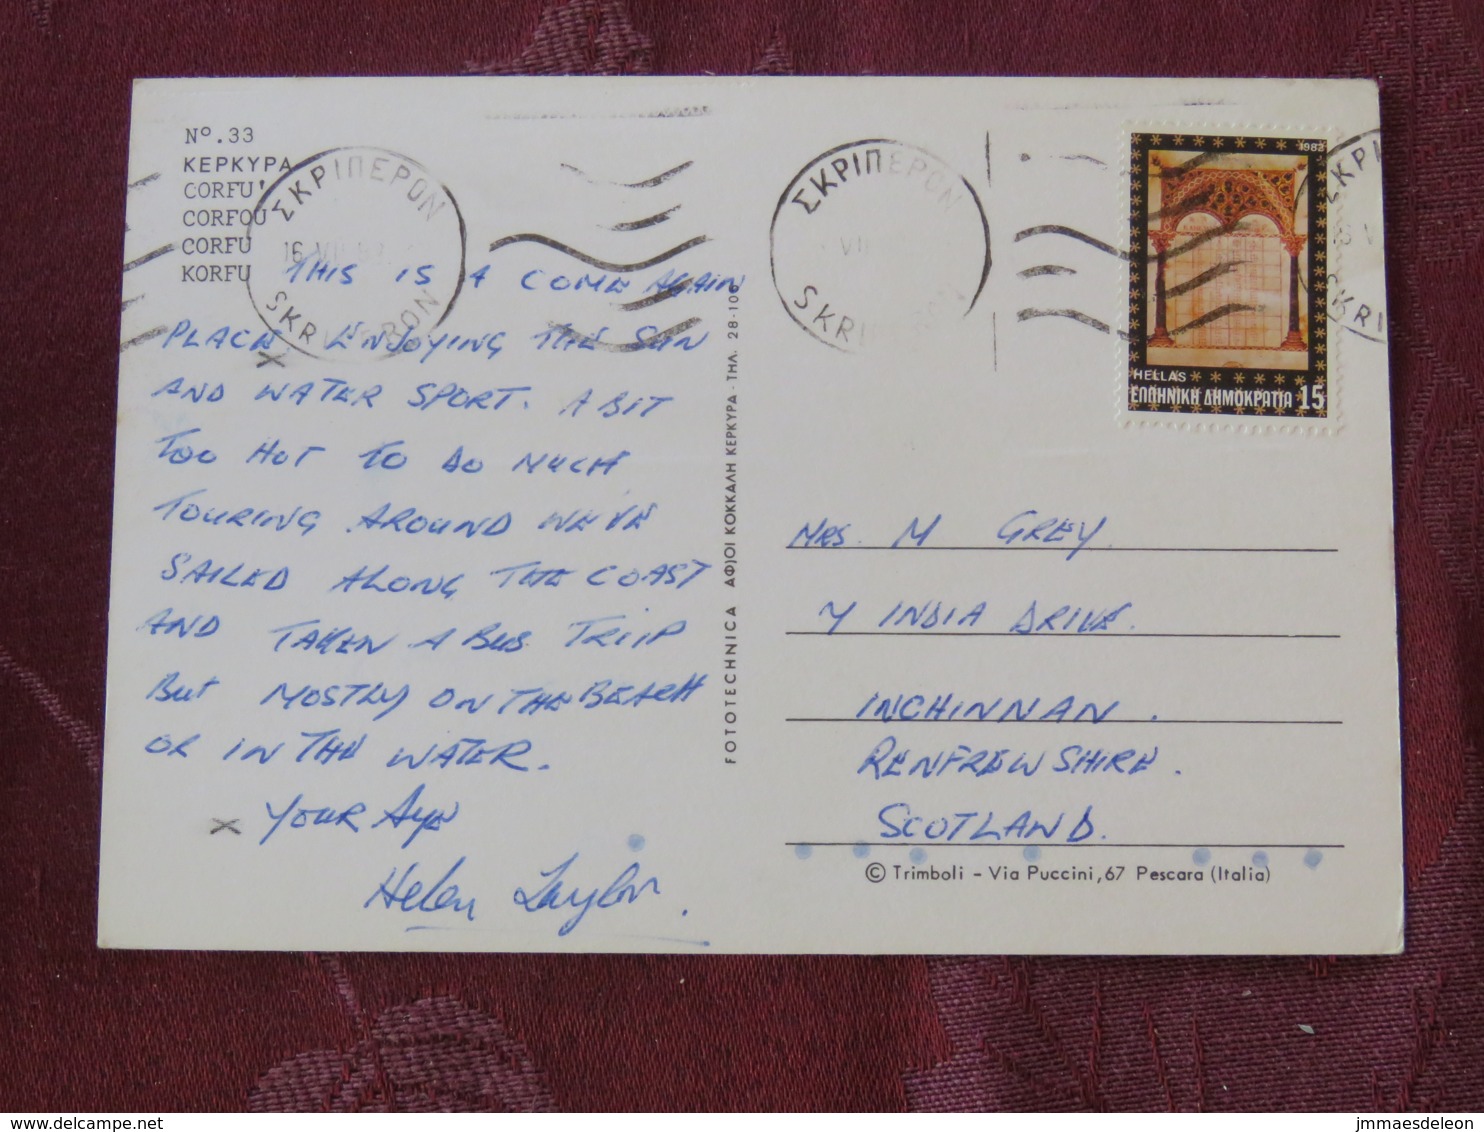 Nº.33
ΚΕΡΚΥΡΑ
CORFU'
CORFOU
CORFU
KORFU
ΣΚΡΙΠΕΡΟΝ
16 VII
SKRIPERON
THIS IS A COME AGAIN
PLACE ENJOYING THE SUN
AND WATER SPORT. A BIT
TOO HOT TO DO MUCH
TOURING AROUND WE'VE
SAILED ALONG THE COAST
AND TAKEN A BUS TRIIP
BUT MOSTLY ON THE BEACH
OR IN THE WATER.
X YOUR AYE
Helen Taylor.
FOTOTECHNICA ΑΦ)ΟΙ ΚΟΚΚΑΛΗ ΚΕΡΚΥΡΑ - ΤΗΛ. 28-100
ΣΚΡΙΠΕΡΟΝ
VII
SKRIPERON
1982
HELLAS
ΕΛΛΗΝΙΚΗ ΔΗΜΟΚΡΑΤΙΑ 15
ΣΚΡΙ
SKRI
MRS. M GREY.
INDIA DRIVE.
INCHINNAN.
RENFREWSHIRE.
SCOTLAND.
© Trimboli - Via Puccini, 67 Pescara (Italia)
www.delcampe.net
jmmaesdeleon